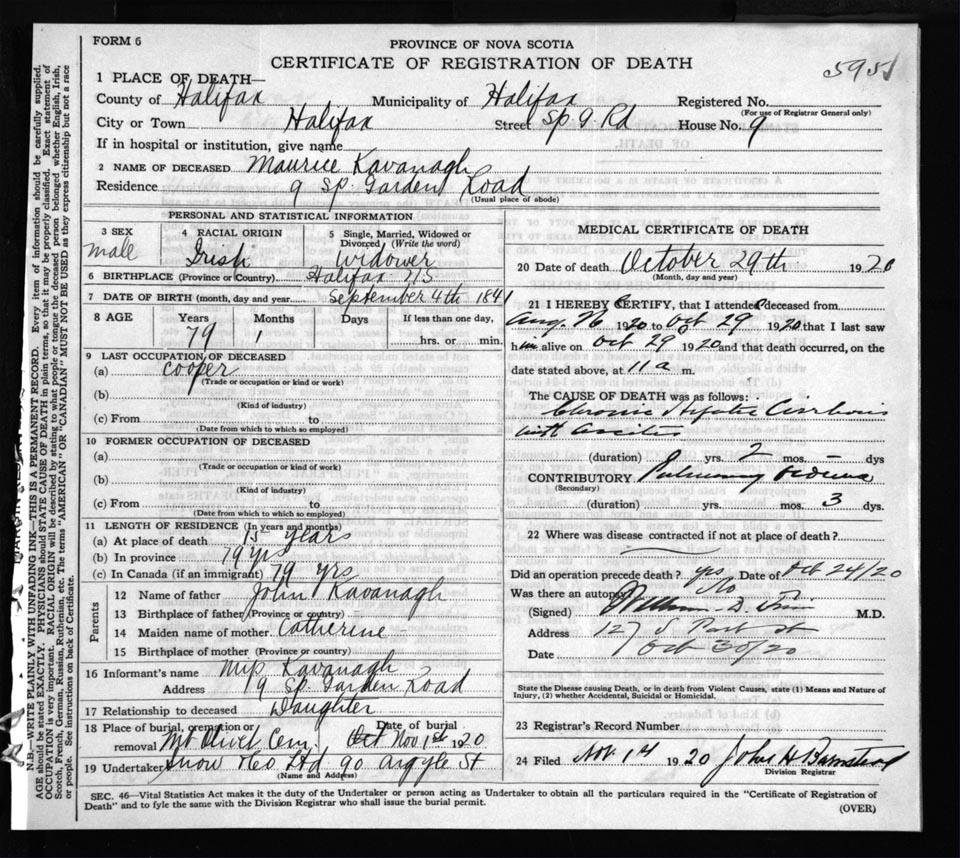 FORM 6
PROVINCE OF NOVA SCOTIA
CERTIFICATE OF REGISTRATION OF DEATH
5951
1 PLACE OF DEATH—
County of Halifax Municipality of Halifax Registered No.
(For use of Registrar General only)
City or Town Halifax Street Sp G Rd House No. 9
If in hospital or institution, give name
2 NAME OF DECEASED Maurice Kavanagh
Residence 9 Sp. Garden Road
(Usual place of abode)
PERSONAL AND STATISTICAL INFORMATION
3 SEX male
4 RACIAL ORIGIN Irish
5 Single, Married, Widowed or Divorced (Write the word) Widower
6 BIRTHPLACE (Province or Country) Halifax NS
7 DATE OF BIRTH (month, day and year) September 4th 1841
8 AGE Years Months Days If less than one day,
79 1 hrs. or min.
9 LAST OCCUPATION OF DECEASED
(a) cooper
(Trade or occupation or kind or work)
(b)
(Kind of industry)
(c) From to
(Date from which to which so employed)
10 FORMER OCCUPATION OF DECEASED
(a)
(Trade or occupation or kind of work)
(b)
(Kind of industry)
(c) From to
(Date from which to which so employed)
11 LENGTH OF RESIDENCE (In years and months)
(a) At place of death 15 years
(b) In province 79 yrs
(c) In Canada (if an immigrant) 79 yrs
Parents
12 Name of father John Kavanagh
13 Birthplace of father (Province or country)
14 Maiden name of mother Catherine -
15 Birthplace of mother (Province or country)
16 Informant's name Miss Kavanagh
Address 19 Sp. Garden Road
17 Relationship to deceased Daughter
18 Place of burial, cremation or removal Mt Olivet Cem. Date of burial Oct Nov 1st 1920
19 Undertaker Snow &Co Ltd 90 Argyle St
(Name and Address)
MEDICAL CERTIFICATE OF DEATH
20 Date of death October 29th 1920
(Month, day and year)
21 I HEREBY CERTIFY, that I attended deceased from
Aug. 1920 to Oct 29 1920 that I last saw
him alive on Oct 29 1920 and that death occurred, on the
date stated above, at 11 a m.
The CAUSE OF DEATH was as follows:
Chronic Hepatic Cirrhosis
with Ascites
(duration) yrs. 2 mos. – dys
CONTRIBUTORY Pulmonary oedema
(Secondary)
(duration) yrs. mos. 3 dys.
22 Where was disease contracted if not at place of death?
Did an operation precede death? yes Date of Oct 24/20
Was there an autopsy? No
(Signed) William D. M.D.
Address 127 S Park St
Date Oct 30/20
State the Disease causing Death, or in death from Violent Causes, state (1) Means and Nature of
Injury, (2) whether Accidental, Suicidal or Homicidal.
23 Registrar's Record Number
24 Filed Nov 1st 1920 John H Barnstead
Division Registrar
SEC. 46—Vital Statistics Act makes it the duty of the Undertaker or person acting as Undertaker to obtain all the particulars required in the "Certificate of Registration of
Death" and to fyle the same with the Division Registrar who shall issue the burial permit.
(OVER)
N.B.—WRITE PLAINLY WITH UNFADING INK—THIS IS A PERMANENT RECORD. Every item of information should be carefully supplied.
AGE should be stated EXACTLY. PHYSICIANS should STATE CAUSE OF DEATH in plain terms, so that it may be properly classified. Exact statement of
OCCUPATION is very important. RACIAL ORIGIN will be described by stating to what people or tongue the deceased person belonged whether English, Irish,
Scotch, French, German, Russian, Ruthenian, etc. The terms "AMERICAN" OR "CANADIAN" MUST NOT BE USED as they express citizenship but not a race
or people. See instructions on back of Certificate.